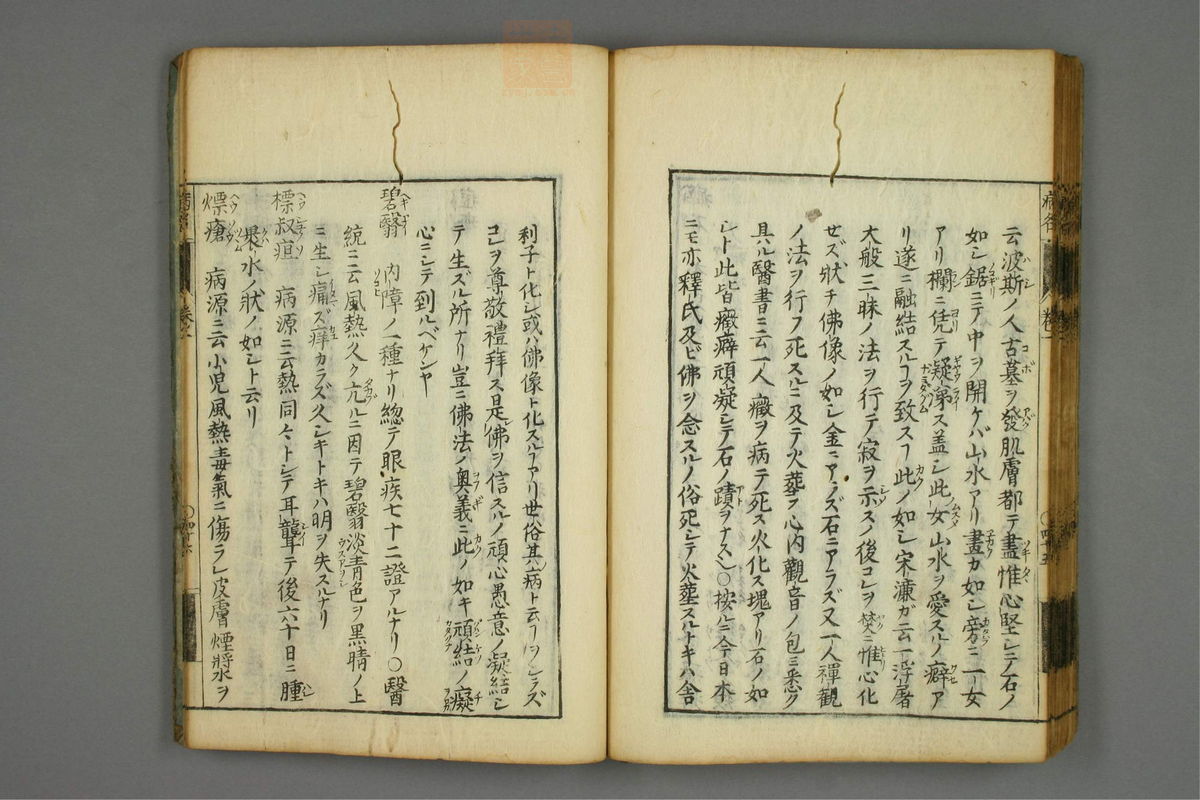 云波斯ノ人古墓ヲ發肌膚都テ盡惟心堅シテ石ノ
如シ鋸ニテ中ヲ開ケバ山水アリ畫カ如シ旁ニ一女
アリ欄ニ凭テ疑第ス盖シ此女山水ヲ愛スルノ癖ア
リ遂ニ融結スルヿヲ致スヿ此ノ如シ宋濂ガ云一浮屠
大般三昧ノ法ヲ行テ寂ヲ示スノ後コレヲ焚ニ惟心化
せズ狀チ佛像ノ如シ金ニアラズ石ニアラズ又一人禪觀
ノ法ヲ行フ死スルニ及テ火葬ヲ心内觀音ノ包ミ悉ク
具ハル醫書ニ云一人癥ヲ病テ死ス火化ス塊アリ石ノ如
シト此皆癥癖頑凝シテ石ノ蹟ヲナス〇按ルニ今日本
ニモ亦釋氏及ビ佛ヲ念スルノ俗死シテ火葬スルトキハ舎
利子ト化シ或ハ佛像ト化スルアリ世俗其病ト云ヿヲシラズ
コレヲ尊敬禮拜ス是佛ヲ信スルノ頑心愚意ノ凝結シ
テ生ズル所ナリ豈ニ佛法ノ奥義ニ此ノ如キ頑結ノ癡
心ニシテ到ルベケンヤ
碧翳 内障ノ一種ナリ惣テ眼疾七十二證アルナリ〇醫
統ニ云風熱久ク亢ルニ因テ碧翳淡青色ヲ黒睛ノ上
ニ生シ痛ズ痒カラズ久シキトキハ明ヲ失スルナリ
標叔疸 病源ニ云熱同々トシテ耳聾テ後六十日ニ腫
裹水ノ狀ノ如シト云リ
熛瘡 病源ニ云小児風熱毒氣ニ傷ラレ皮膚煙漿ヲ